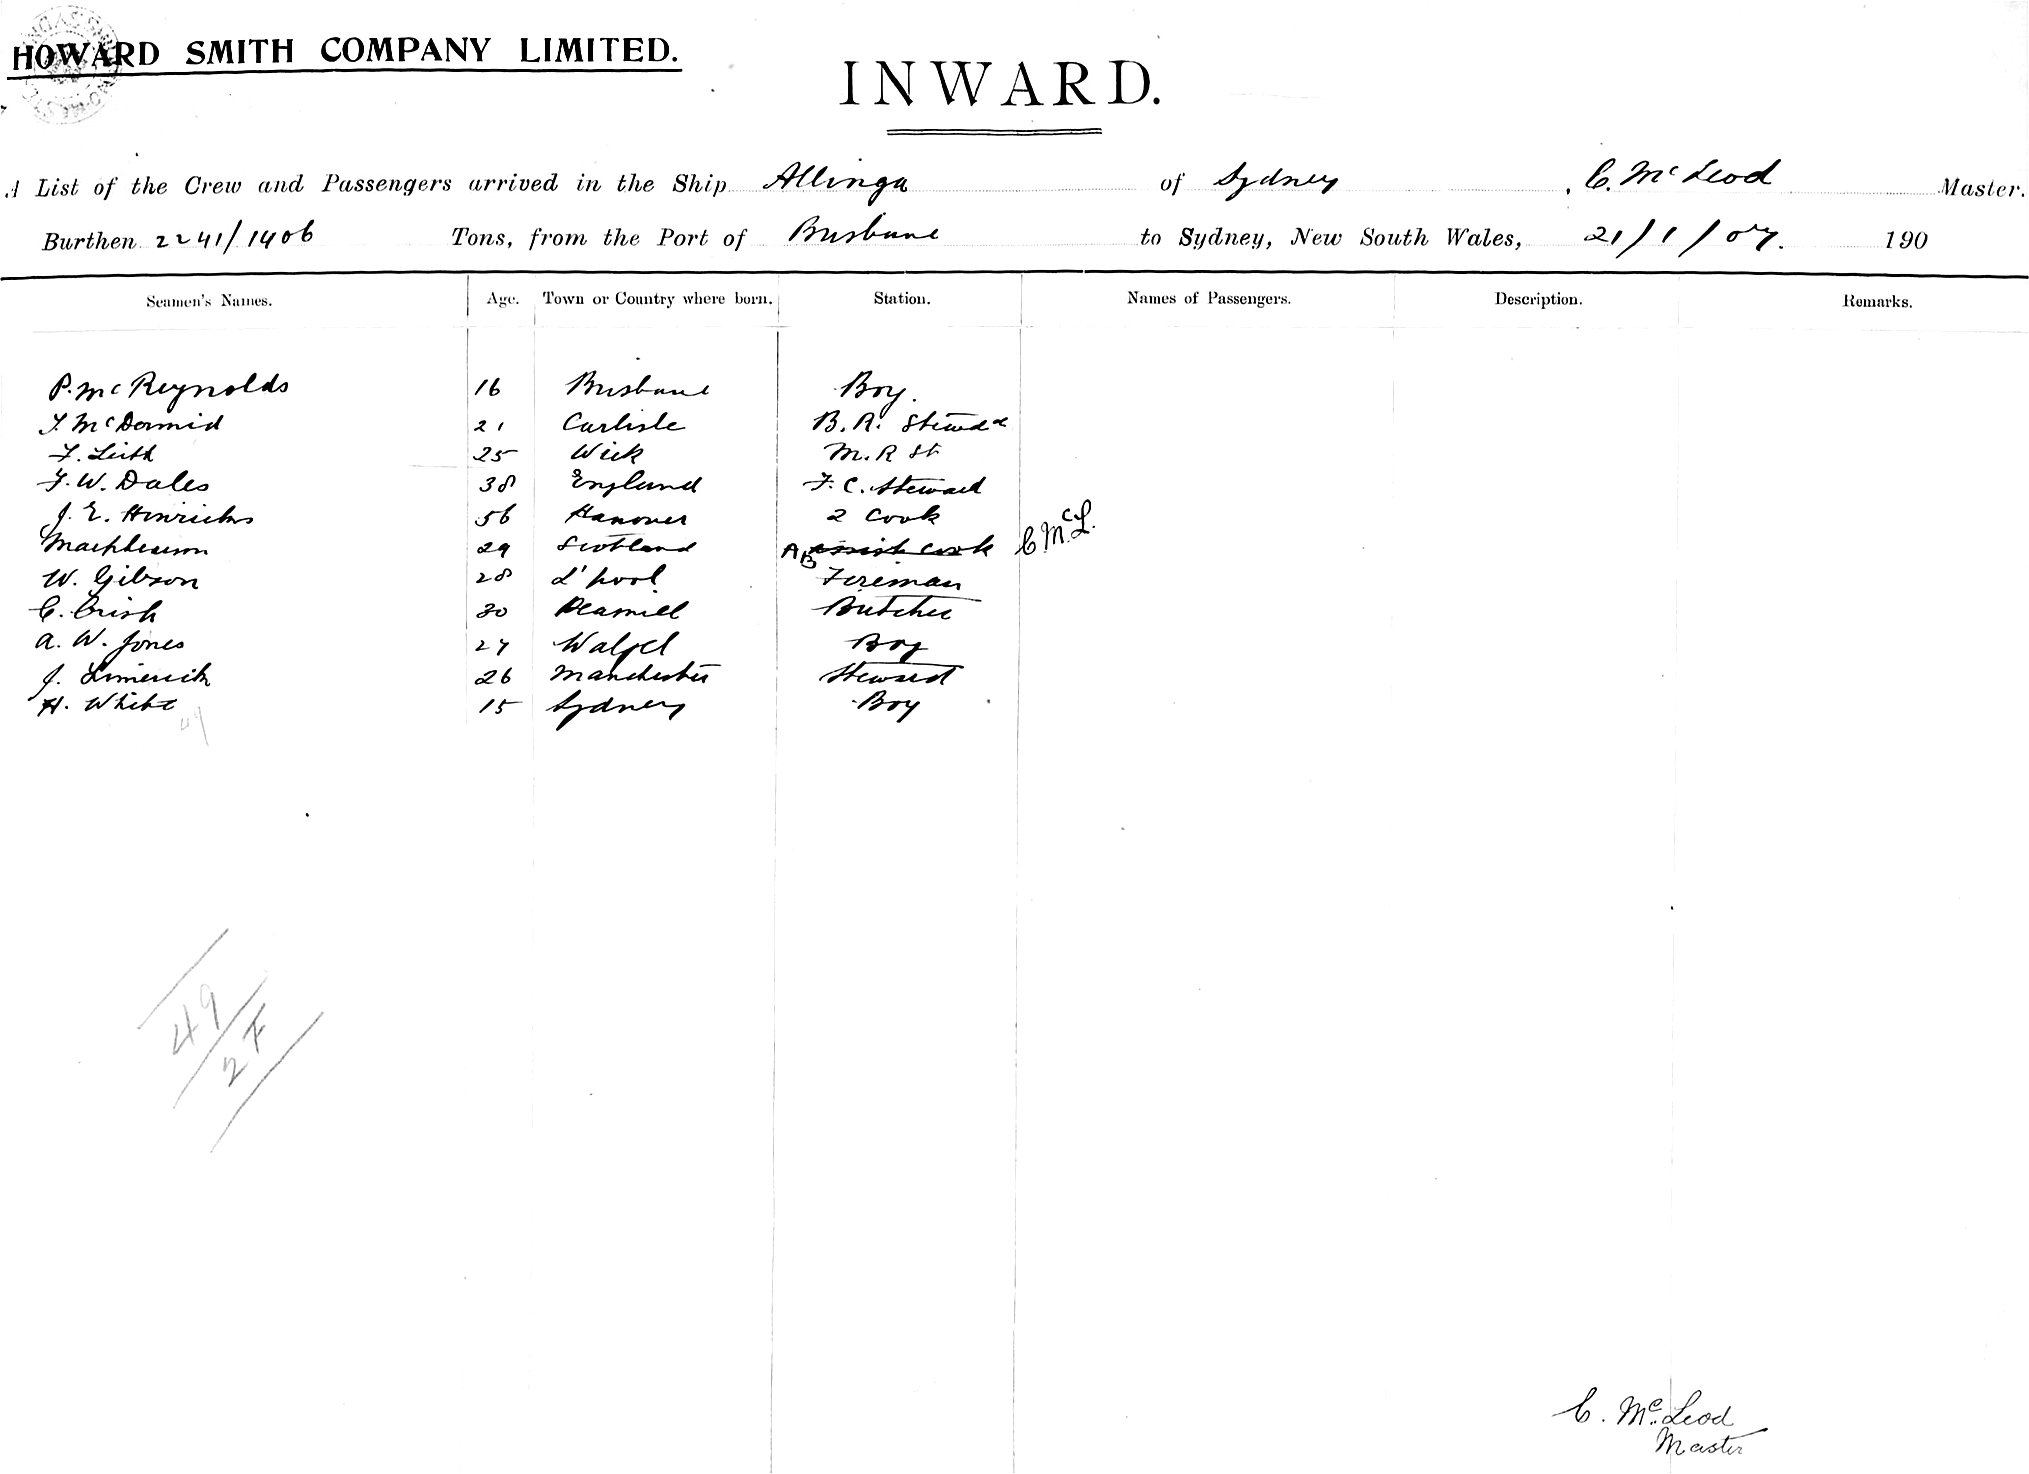 HOWARD SMITH COMPANY LIMITED.
INWARD.
A List of the Crew and Passengers arrived in the Ship Allinga of Sydney, C. McLeod Master.
Burthen 2241/1406 Tons, from the Port of Brisbane to Sydney, New South Wales, 21/1/07. 190
Seamen's Names. Age. Town or Country where born. Station. Names of Passengers. Description. Remarks.
P. McReynolds 16 Brisbane Boy.
McDermid 21 Carlisle B. R. Stewd
F. Leith 25 Wick M. R St
F. W. Dales 38 England F. C. Steward
J. E. Hinrichs 56 Hanover 2 Cook
Macpherson 29 Scotland AB assist cook C. McL.
W. Gibson 28 L'pool Fireman
C. Crish 30 Butcher
A. W. Jones 27 Boy
J. Limerick 26 Manchester Steward
H. White 15 Sydney Boy
49
49
2 F
C. McLeod
Master